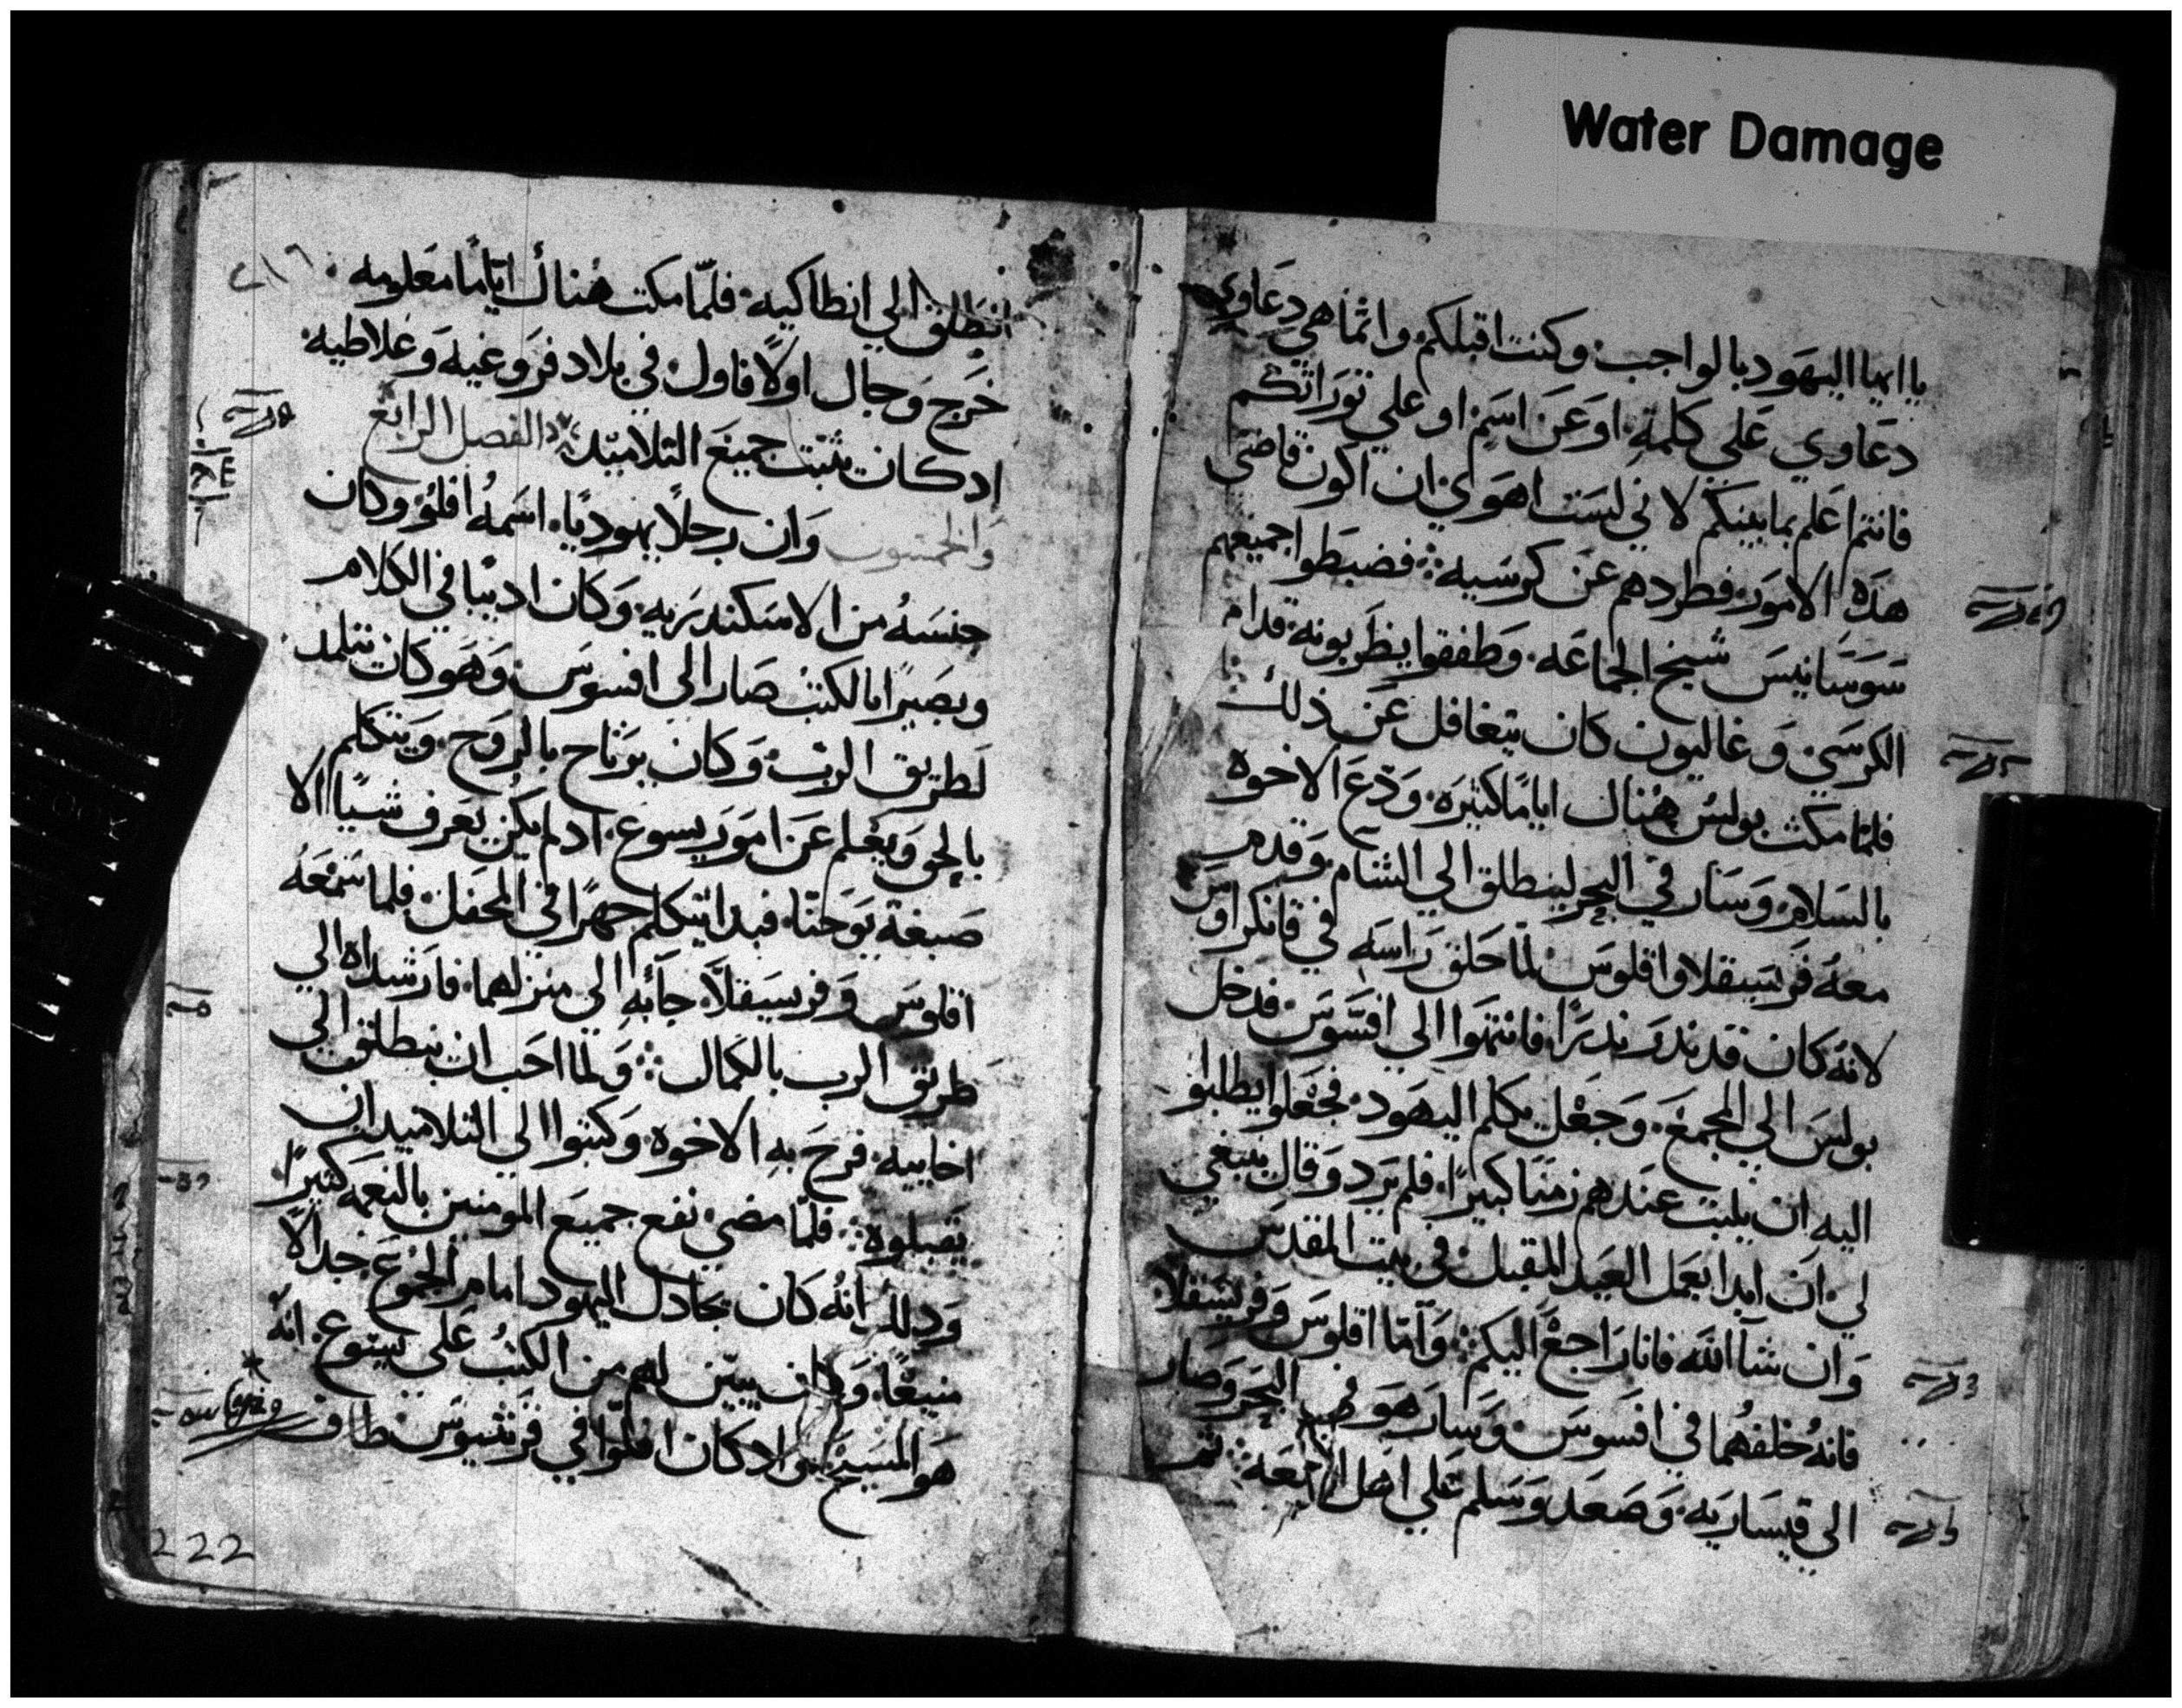 Water Damage
يا ايها اليهود بالواجب وكنت اقبلكم وانما هي دعاوي
دعاوي علي كلمة او عن اسم او علي توراتكم
فانتم اعلم بما بينكم لاني لست اهوي ان اكون قاضي
هذه الامور فطردهم عن كرسيه فضبطوا جميعهم
سوستانيس شيخ الجماعه وطفقوا يضربونه قدام
الكرسي وغاليون كان يتغافل عن ذلك
فلما مكث بولس هناك اياما كثيره ودع الاخوه
بالسلام وسار في البحر لينطلق الي الشام وقدم
معه فريسقلا واقلوس لما حلق راسه في قانكراوس
لانه كان قد نذر نذرا فانتهوا الي افسوس فدخل
بولس الي المجمع وجعل يكلم اليهود فجعلوا يطلبوا
اليه ان يلبث عندهم زمنا كبيرا فلم يرد وقال ينبغي
لي ان ابدا بعمل العيد المقبل في بيت المقدس
وان شا الله فانا راجع اليكم واما اقلوس وفريسقلا
فانه خلفهما في افسوس وسار هو في البحر وصار
الي قيساريه وصعد وسلم علي اهل البيعه ثم
انطلق الي انطاكيه فلما مكث هناك اياما معلومه
خرج وجال اولا فاول في بلاد فروغيه وغلاطيه
اذ كان يثبت جميع التلاميذ الفصل الرابع
والخمسون وان رجلا يهوديا اسمه افلو وكان
جنسه من الاسكندريه وكان اديبا في الكلام
وبصيرا بالكتب صار الي افسوس وهو كان تتلمد
لطريق الرب وكان يرتاح بالروح ويتكلم
بالحق ويعلم عن امور يسوع اد لم يكن يعرف شيا الا
صبغة يوحنا فبدا يتكلم جهرا في المحفل فلما سمعه
اقلوس وفريسقلا جآ به الي منزلهما فارشداه الي
طريق الرب بالكمال ولما احب ان ينطلق الي
اخاييه فرح به الاخوه وكتبوا الي التلاميد ان
يقبلوه فلما مضي نفع جميع المومنين بالنعمه كثيرا
ودلك انه كان يجادل اليهود امام الجموع جدالا
منيعا وكان يبين لهم من الكتب علي يسوع انه
هو المسيح واد كان افلوا في قرنثيوس طاف
222